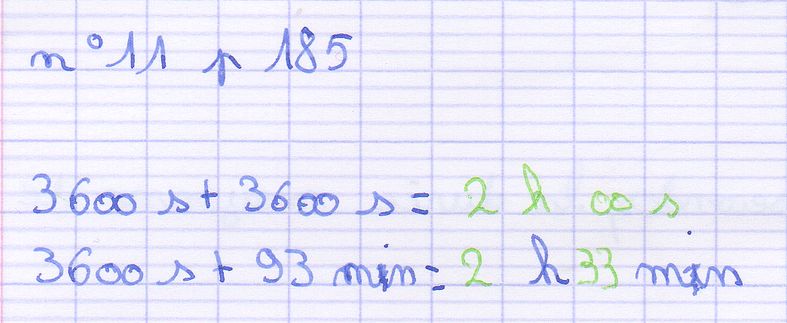 n°11 p 185
3600 s + 3600 s = 2 h 00 s
3600 s + 93 min = 2 h 33 min